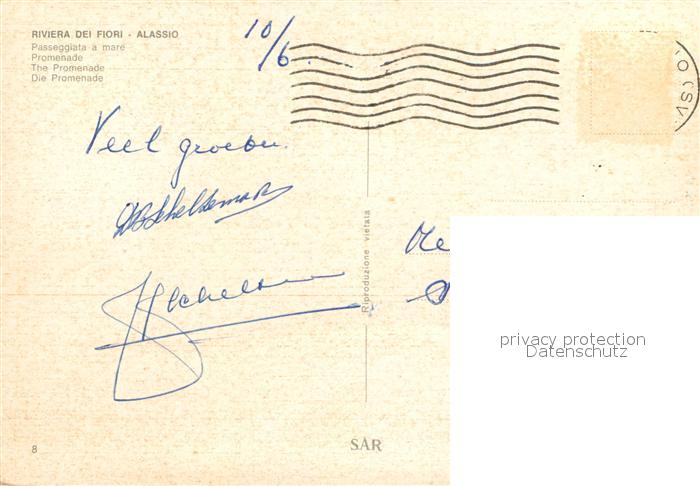 RIVIERA DEI FIORI - ALASSIO
Passeggiata a mare
Promenade
The Promenade
Die Promenade
10/6.
Veel groeten.
Riproduzione vietata
privacy protection
Datenschutz
8
SAR